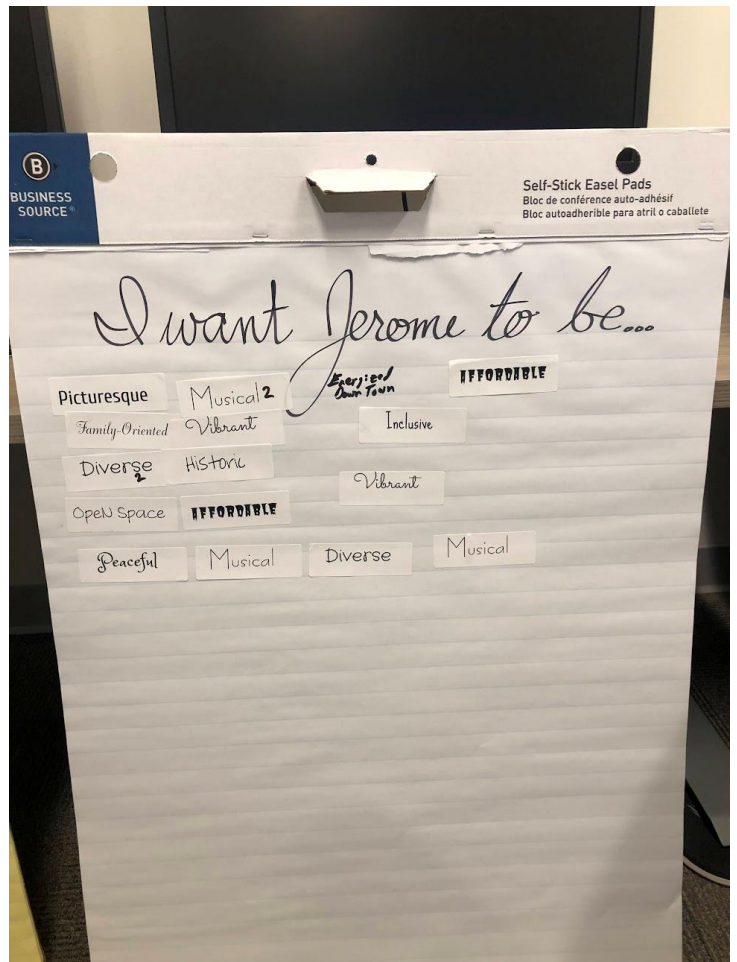 B
BUSINESS
SOURCE®
Self-Stick Easel Pads
Bloc de conférence auto-adhésif
Bloc autoadherible para atril o caballete
I want Jerome to be...
Picturesque
Musical 2
Energized
Down Town
AFFORDABLE
Family-Oriented
Vibrant
Inclusive
Diverse
2
Historic
Vibrant
Open Space
AFFORDABLE
Peaceful
Musical
Diverse
Musical